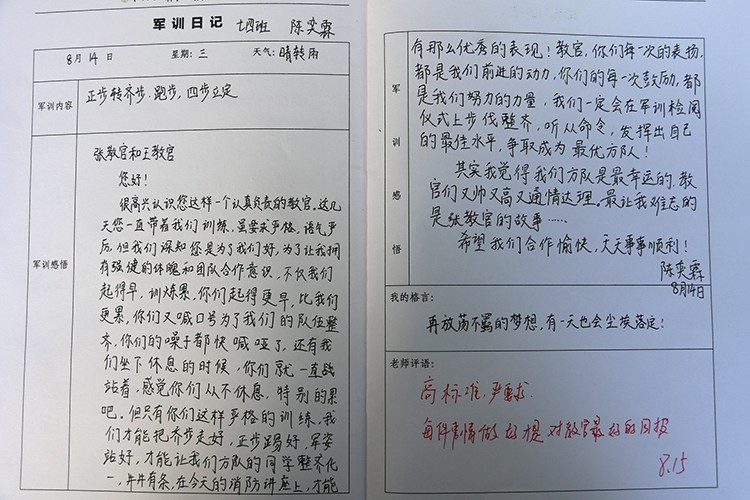 军训日记 七四班 陈奕霖
8月14日 星期:三 天气:晴转雨
军训内容
正步转齐步.跑步,四步立定
军训感悟
张教官和王教官
您好!
很高兴认识您这样一个认真负责的教官,这几
天您一直带着我们训练,虽要求严格,语气严
厉,但我们深知您是为了我们好,为了让我拥
有强健的体魄和团队合作意识,不仅我们
起得早,训炼累,你们起得更早,比我们
更累,你们又喊口号为了我们的队伍整
齐,你们的嗓子都快喊哑了,还有我
们坐下休息的时候,你们就一直战
站着,感觉你们从不休息,特别的累
吧。但只有你们这样严格的训练,我
们才能把齐步走好,正步踢好,军姿
站好,才能让我们方队的同学整齐化
一,井井有条,在今天的消防讲座上,才能
军训感悟
有那么优秀的表现!教官,你们每一次的表扬,
都是我们前进的动力,你们的每一次鼓励,都
是我们努力的力量,我们一定会在军训检阅
仪式上步伐整齐,听从命令,发挥出自己
的最佳水平,争取成为最优方队!
其实我觉得我们方队是最幸运的.教
官们又帅又高又通情达理。最让我难忘的
是张教官的故事……
希望我们合作愉快,天天事事顺利!
陈奕霖
8月14日
我的格言:
再放荡不羁的梦想,有一天也会尘埃落定!
老师评语:
高标准.严要求.
每件事情做好是对教官最好的回报
8.15